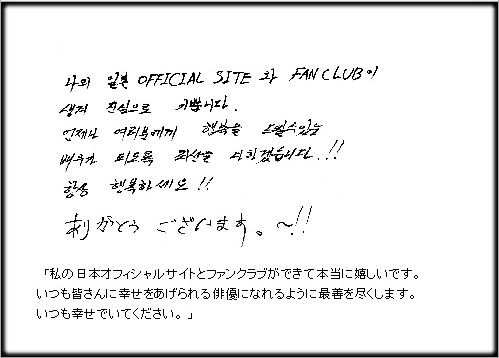 나의 일본 OFFICIAL SITE 와 FAN CLUB이
생겨 진심으로 기쁩니다.
언제나 여러분에게 행복을 드릴수있는
배우가 되도록 최선을 다하겠습니다.!!
항상 행복하세요!!
ありがとうございます。~!!
「私の日本オフィシャルサイトとファンクラブができて本当に嬉しいです。
いつも皆さんに幸せをあげられる俳優になれるように最善を尽くします。
いつも幸せでいてください。」